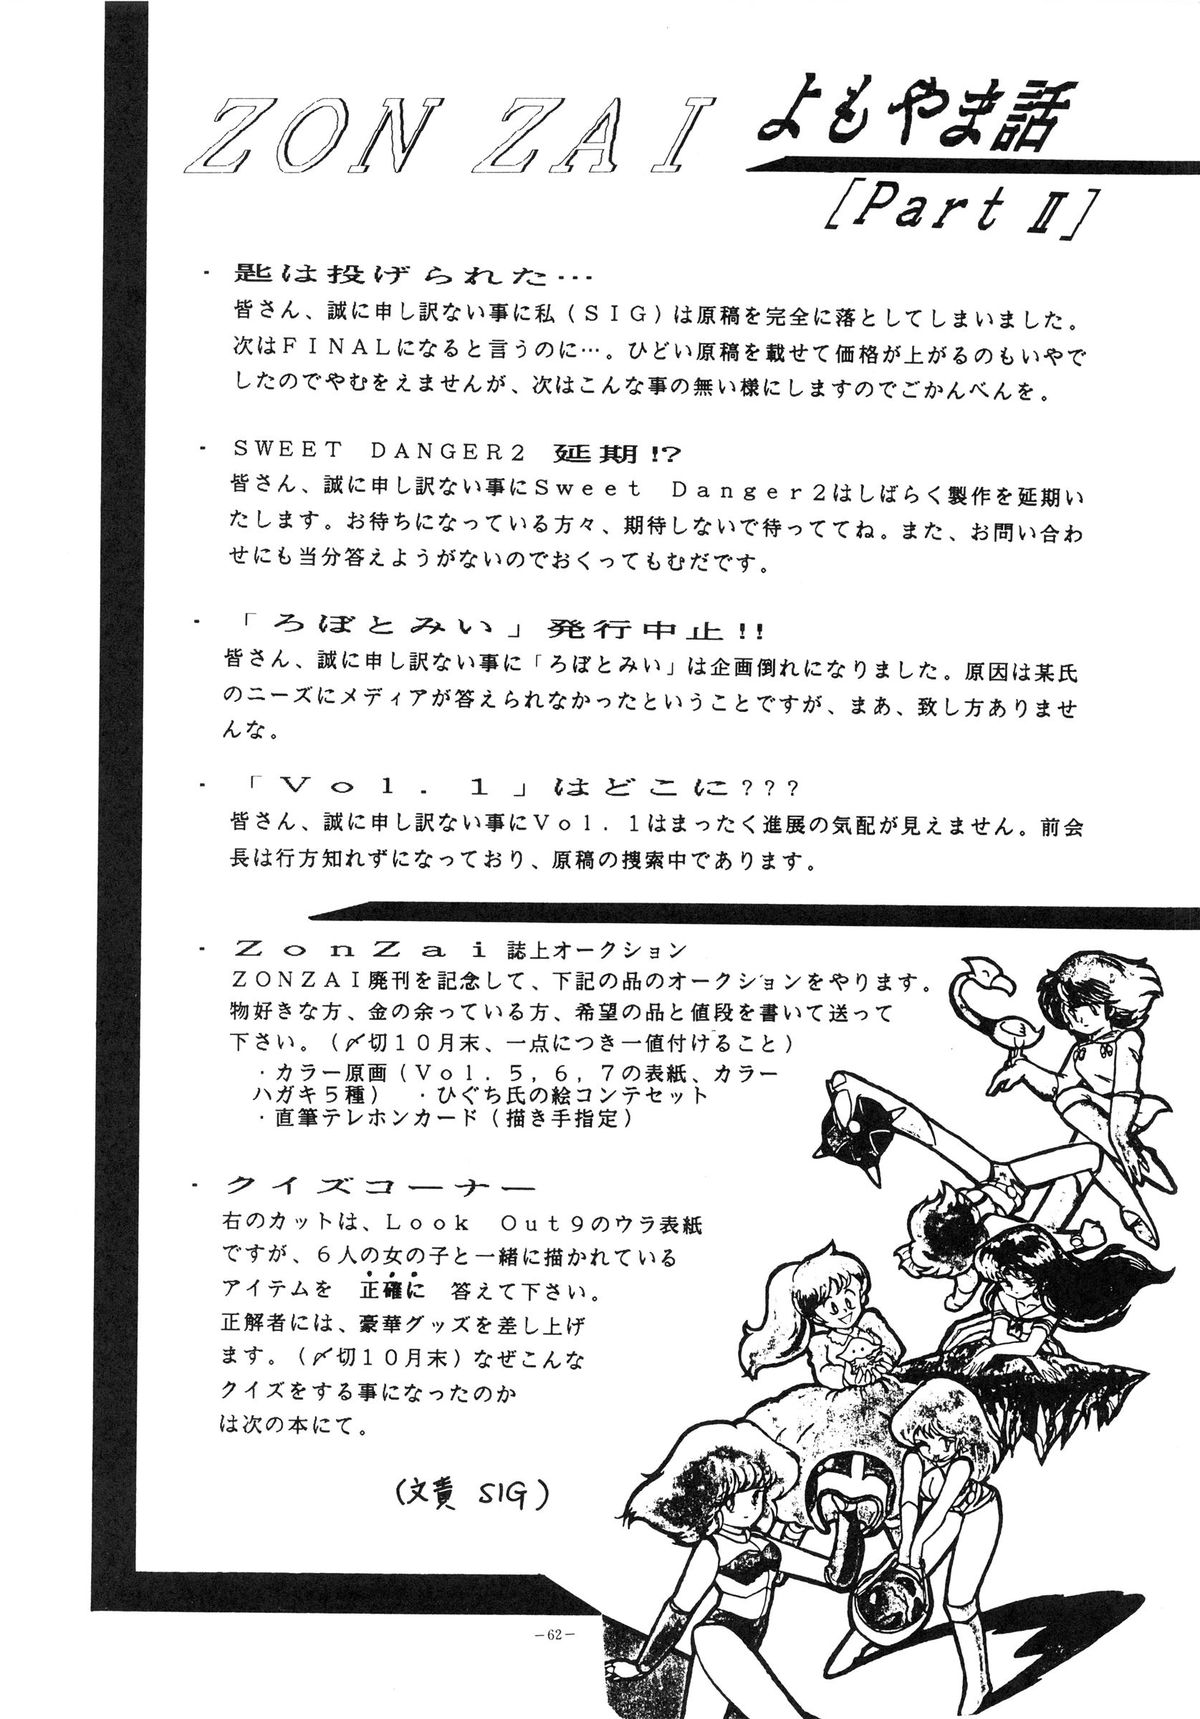 ZON ZAI よもやま話
[Part Ⅱ]
・匙は投げられた…
皆さん、誠に申し訳ない事に私(SIG)は原稿を完全に落としてしまいました。
次はFINALになると言うのに…。ひどい原稿を載せて価格が上がるのもいやで
したのでやむをえませんが、次はこんな事の無い様にしますのでごかんべんを。
・SWEET DANGER2 延期!?
皆さん、誠に申し訳ない事にSweet Danger2はしばらく製作を延期い
たします。お待ちになっている方々、期待しないで待っててね。また、お問い合わ
せにも当分答えようがないのでおくってもむだです。
・「ろぼとみい」発行中止!!
皆さん、誠に申し訳ない事に「ろぼとみい」は企画倒れになりました。原因は某氏
のニーズにメディアが答えられなかったということですが、まあ、致し方ありませ
んな。
・「Vol.1」はどこに???
皆さん、誠に申し訳ない事にVol.1はまったく進展の気配が見えません。前会
長は行方知れずになっており、原稿の捜索中であります。
・ZonZai誌上オークション
ZONZAI廃刊を記念して、下記の品のオークションをやります。
物好きな方、金の余っている方、希望の品と値段を書いて送って
下さい。(〆切10月末、一点につき一値付けること)
・カラー原画(Vol.5,6,7の表紙、カラー
ハガキ5種) ・ひぐち氏の絵コンテセット
・直筆テレホンカード(描き手指定)
・クイズコーナー
右のカットは、Look Out9のウラ表紙
ですが、6人の女の子と一緒に描かれている
アイテムを 正確に 答えて下さい。
正解者には、豪華グッズを差し上げ
ます。(〆切10月末)なぜこんな
クイズをする事になったのか
は次の本にて。
(文責 SIG)
-62-